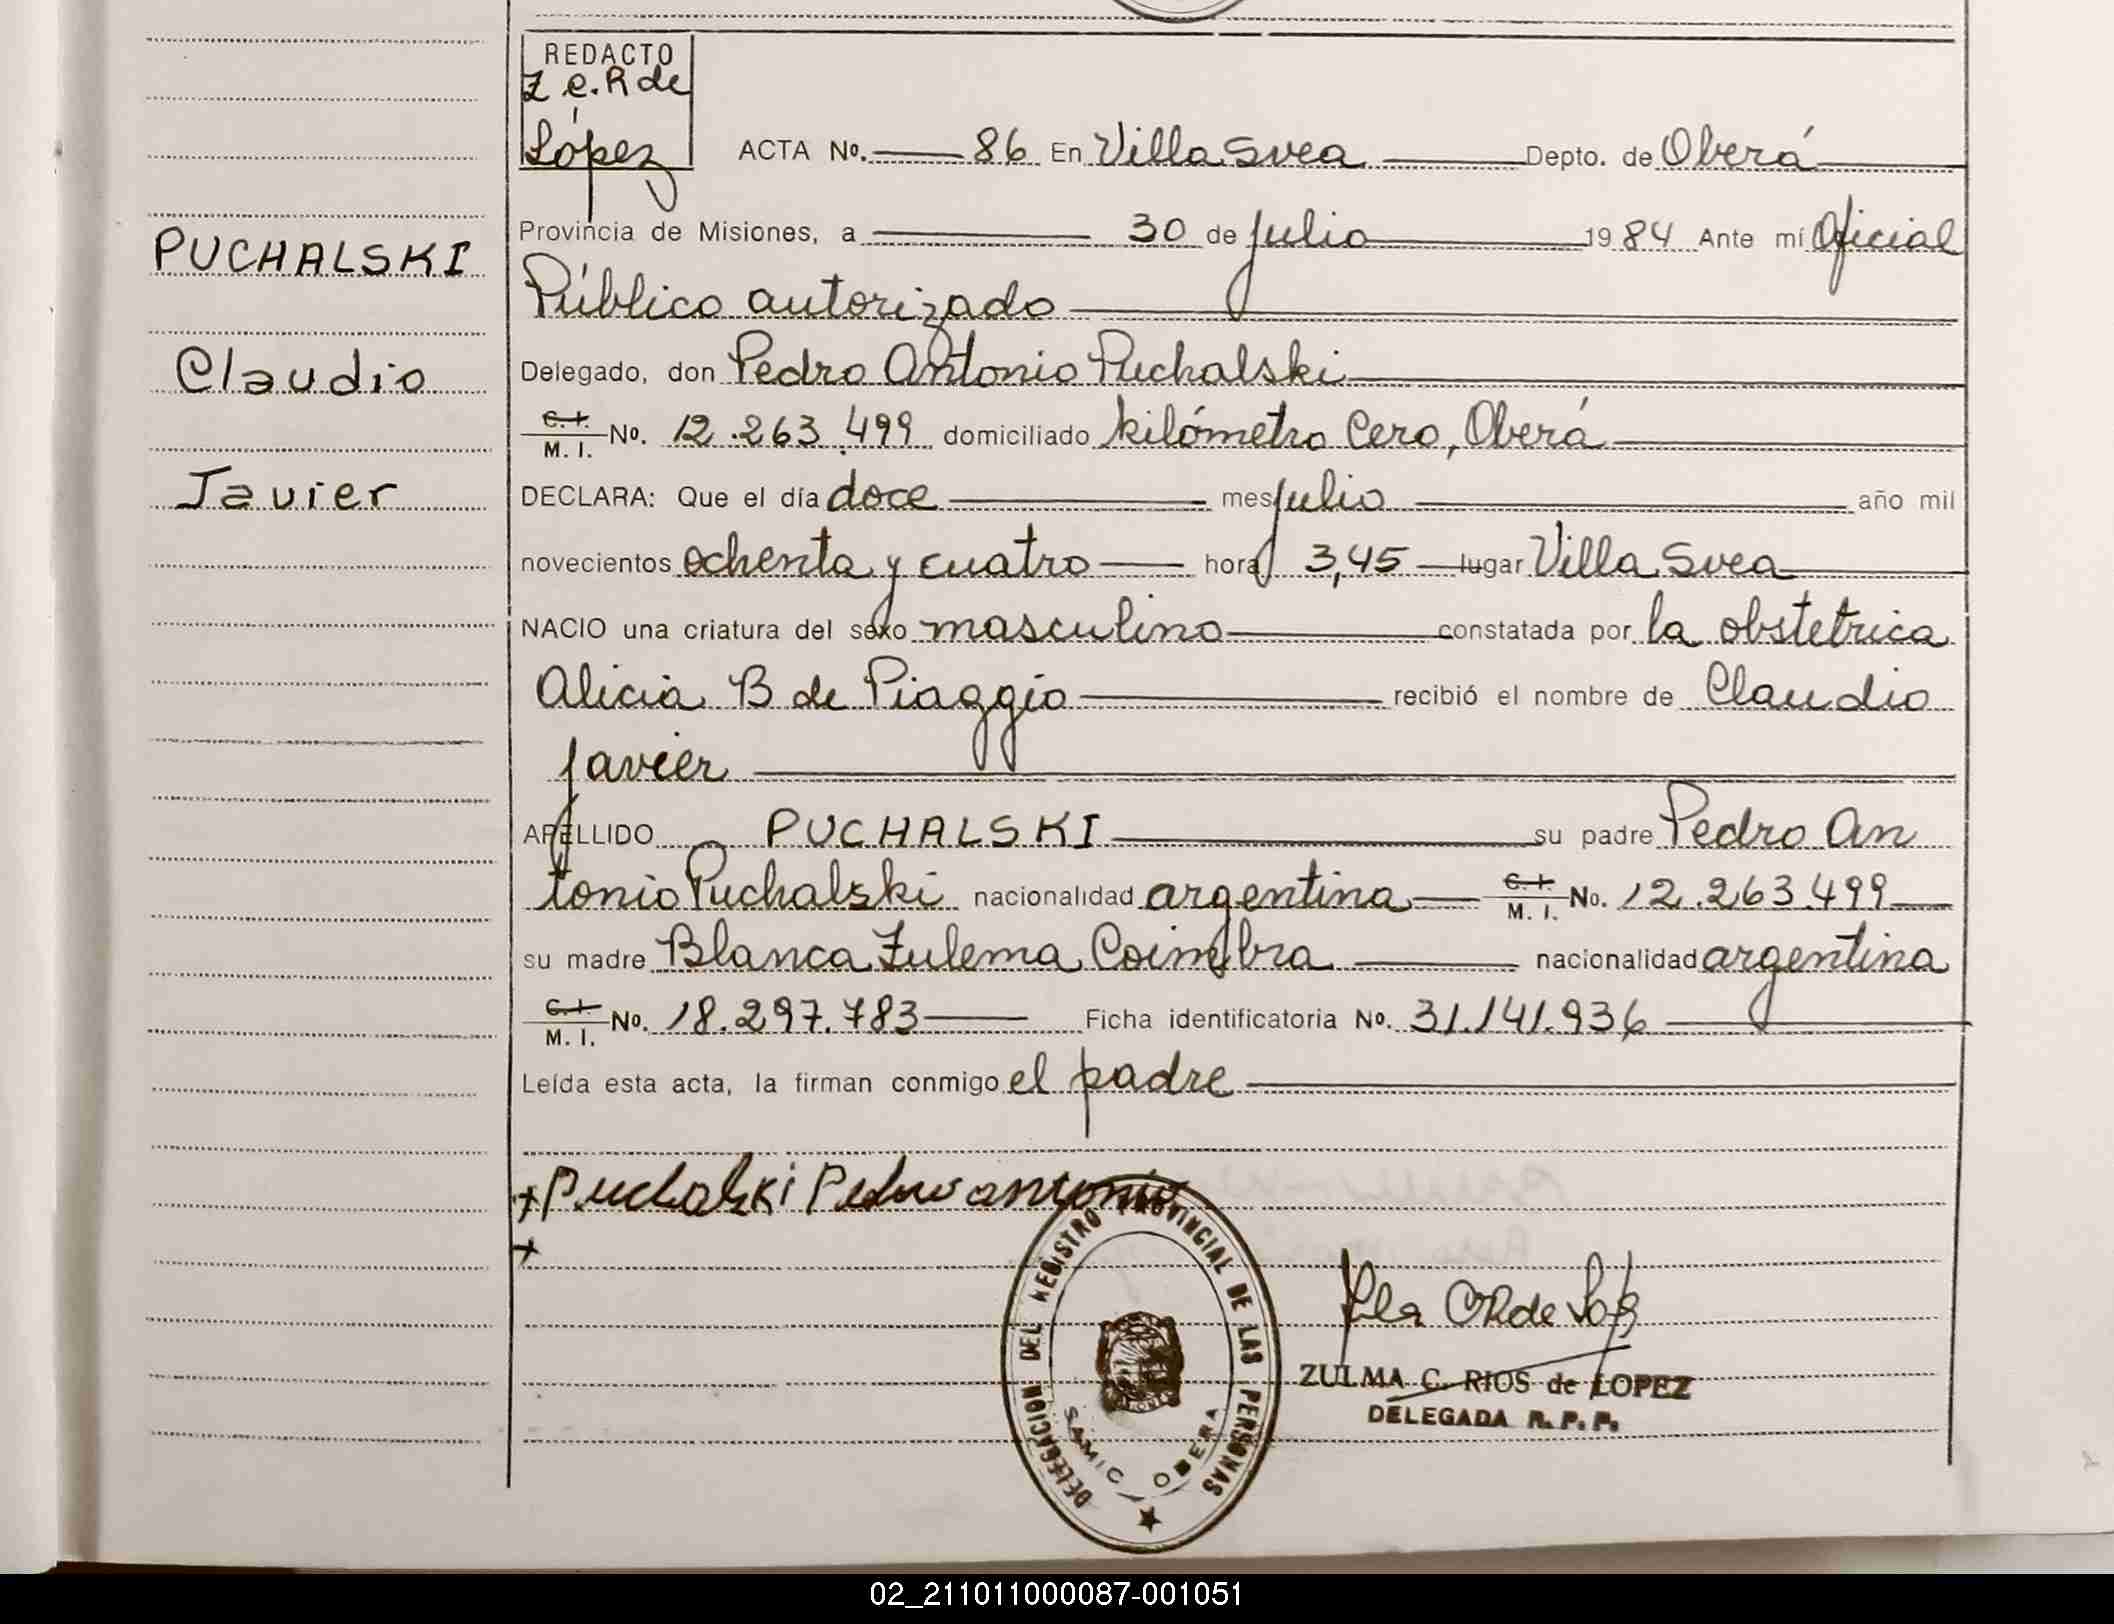 REDACTO
Z C. R de
López
ACTA No. 86 En Villa Svea Depto. de Oberá
Provincia de Misiones, a 30 de julio 1984 Ante mí Oficial
Público autorizado
Delegado, don Pedro Antonio Puchalski
C. I.
M. I. No. 12.263.499 domiciliado kilómetro Cero, Oberá
DECLARA: Que el día doce mes julio año mil
novecientos ochenta y cuatro hora 3,45 lugar Villa Svea
NACIO una criatura del sexo masculino constatada por la obstetrica
Alicia B de Piaggio recibió el nombre de Claudio
Javier
APELLIDO PUCHALSKI su padre Pedro An
tonio Puchalski nacionalidad argentina C. I. M. I. No. 12.263.499
su madre Blanca Zulema Coimbra nacionalidad argentina
C. I.
M. I. No. 18.297.783 Ficha identificatoria No. 31.141.936
Leída esta acta, la firman conmigo el padre
PUCHALSKI
Claudio
Javier
+ Puchalski Pedro antonio
+
DELEGACION DEL REGISTRO PROVINCIAL DE LAS PERSONAS
SAMIC OBERA
ZULMA C. RIOS de LOPEZ
DELEGADA R. P. P.
02_211011000087-001051